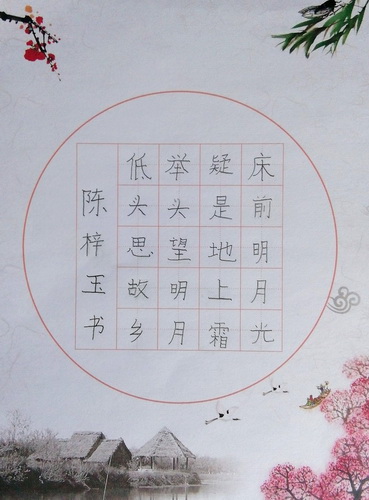 床前明月光
疑是地上霜
举头望明月
低头思故乡
陈梓玉书